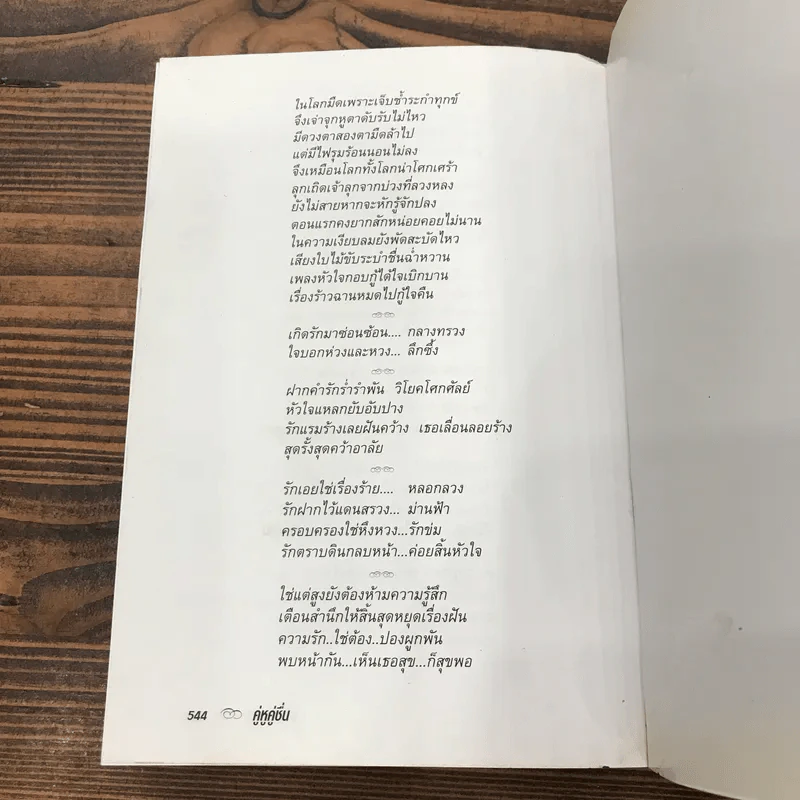 ในโลกมืดเพราะเจ็บช้ำระกำทุกข์
จึงเจ่าจุกหูตาดับรับไม่ไหว
มีดวงตาสองตามืดล้าไป
แต่มีไฟรุมร้อนนอนไม่ลง
จึงเหมือนโลกทั้งโลกน่าโศกเศร้า
ลุกเถิดเจ้าลุกจากบ่วงที่ลวงหลง
ยังไม่สายหากจะหักรู้จักปลง
ตอนแรกคงยากสักหน่อยคอยไม่นาน
ในความเงียบลมยังพัดสะบัดไหว
เสียงใบไม้ขับระบำชื่นฉ่ำหวาน
เพลงหัวใจกอบกู้ได้ใจเบิกบาน
เรื่องร้าวฉานหมดไปกู้ใจคืน
เกิดรักมาซ่อนซ้อน.... กลางทรวง
ใจบอกห่วงและหวง... ลึกซึ้ง
ฝากคำรักร่ำรำพัน วิโยคโศกศัลย์
หัวใจแหลกยับอับปาง
รักแรมร้างเลยฝันคว้าง เธอเลื่อนลอยร้าง
สุดรั้งสุดคว้าอาลัย
รักเอยใช่เรื่องร้าย.... หลอกลวง
รักฝากไว้แดนสรวง... ม่านฟ้า
ครอบครองใช่หึงหวง...รักข่ม
รักตราบดินกลบหน้า...ค่อยสิ้นหัวใจ
ใช่แต่สูงยังต้องห้ามความรู้สึก
เตือนสำนึกให้สิ้นสุดหยุดเรื่องฝัน
ความรัก..ใช่ต้อง..ปองผูกพัน
พบหน้ากัน...เห็นเธอสุข...ก็สุขพอ
544 คู่หูคู่ชื่น